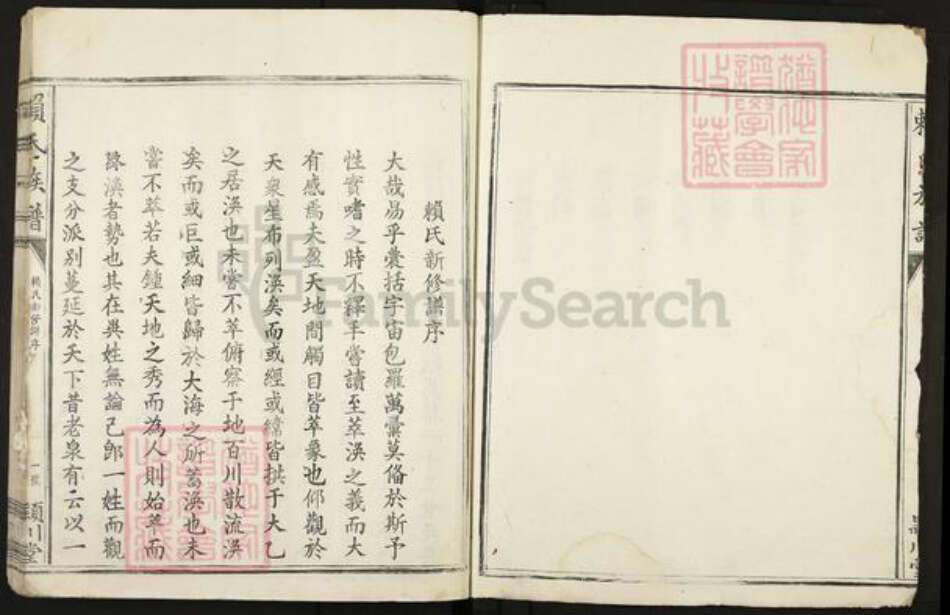 賴氏新修譜序
大哉易乎囊括宇宙包羅萬彙莫俻於斯予
性實嗜之時不釋手嘗讀至萃渙之義而大
有感焉夫盈天地間觸目皆萃象也仰觀於
天衆星布列渙矣而或經或緯皆拱于大乙
之居渙也未嘗不萃俯察于地百川散流渙
矣而或巨或細皆歸於大海之所蓄渙也未
嘗不萃若夫鍾天地之秀而為人則始萃而
終渙者勢也其在異姓無論已即一姓而觀
之支分派別蔓延於天下昔老泉有云以一
賴氏族譜
賴氏新修譜序
一號
潁川堂
譜學會
收藏
FamilySearch